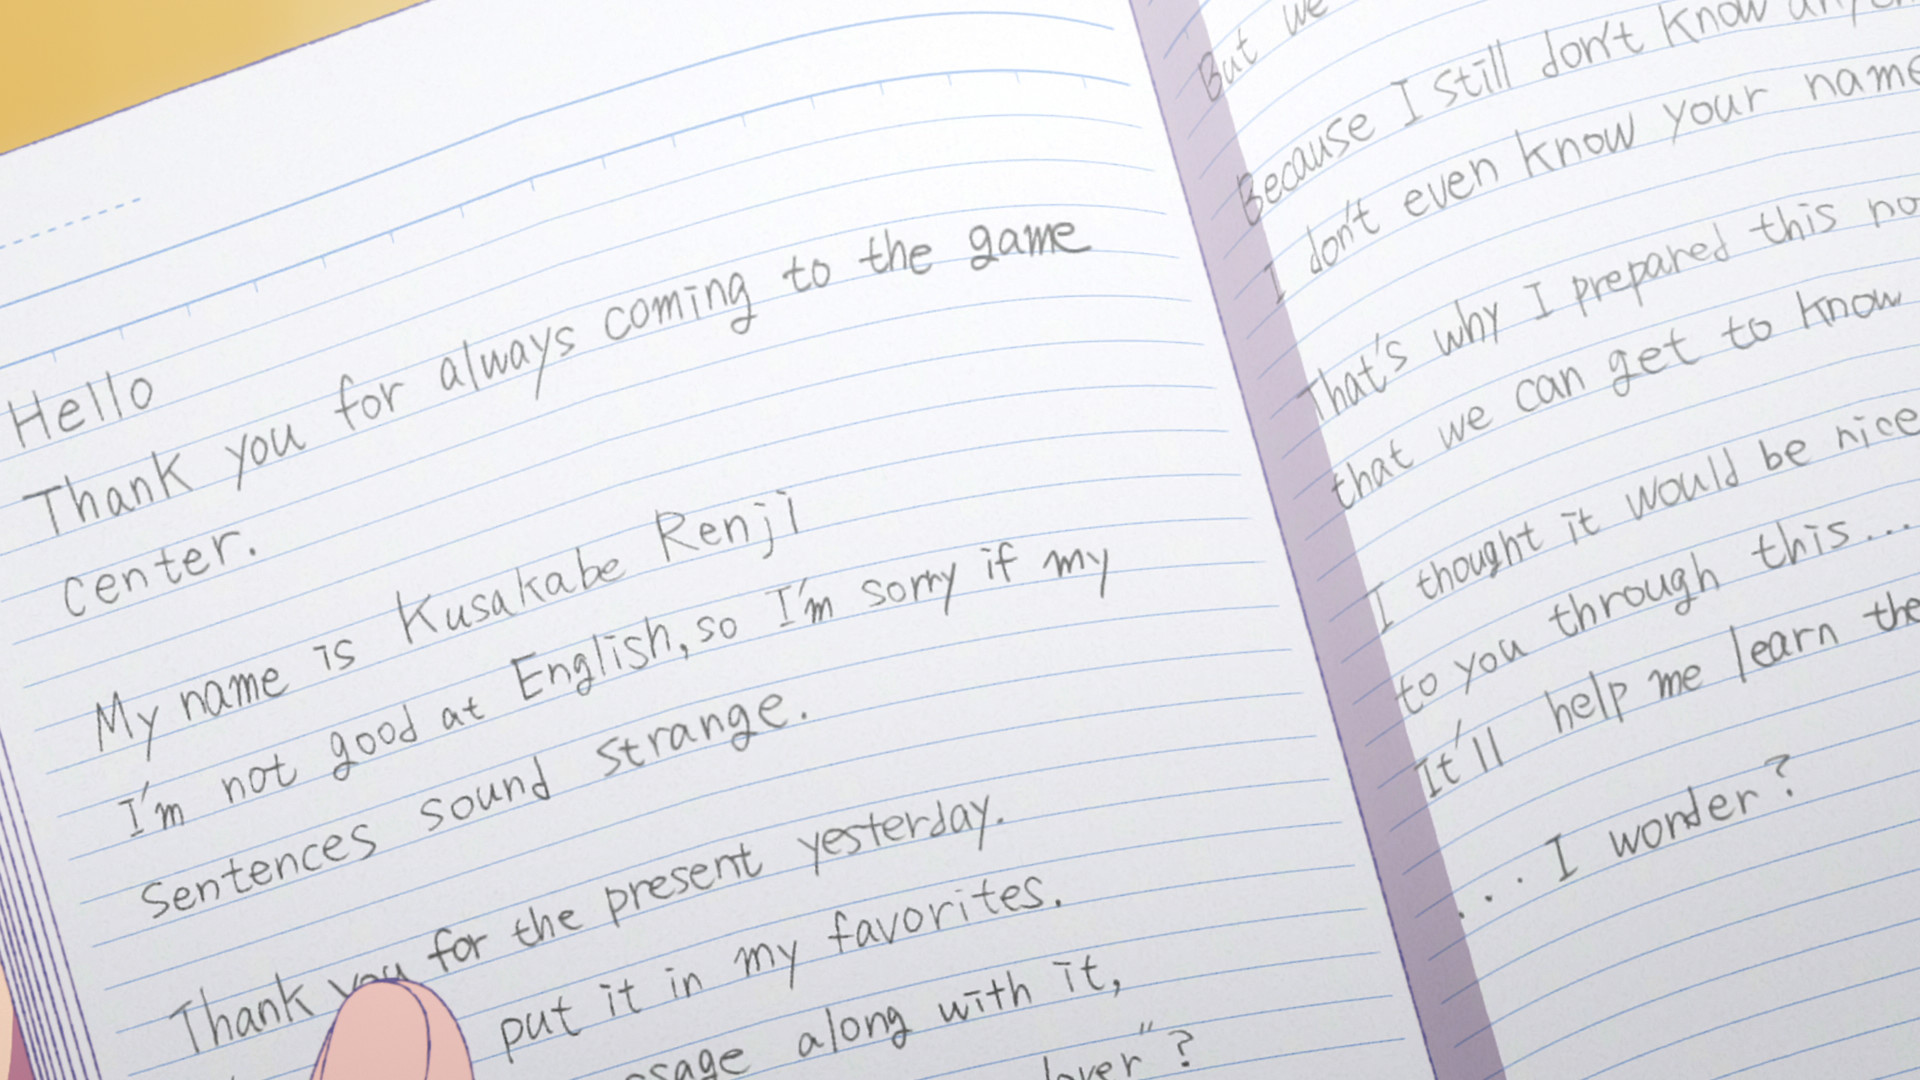 Hello
Thank you for always coming to the game
center.
My name is Kusakabe Renji
I'm not good at English, so I'm sorry if my
Sentences sound strange.
Thank you for the present yesterday.
put it in my favorites.
along with it,
lover"?
But we
Because I still don't know
I don't even know your name
That's why I prepared this
that we can get to know
I thought it would be nice
to you through this...
It'll help me learn the
...I wonder?